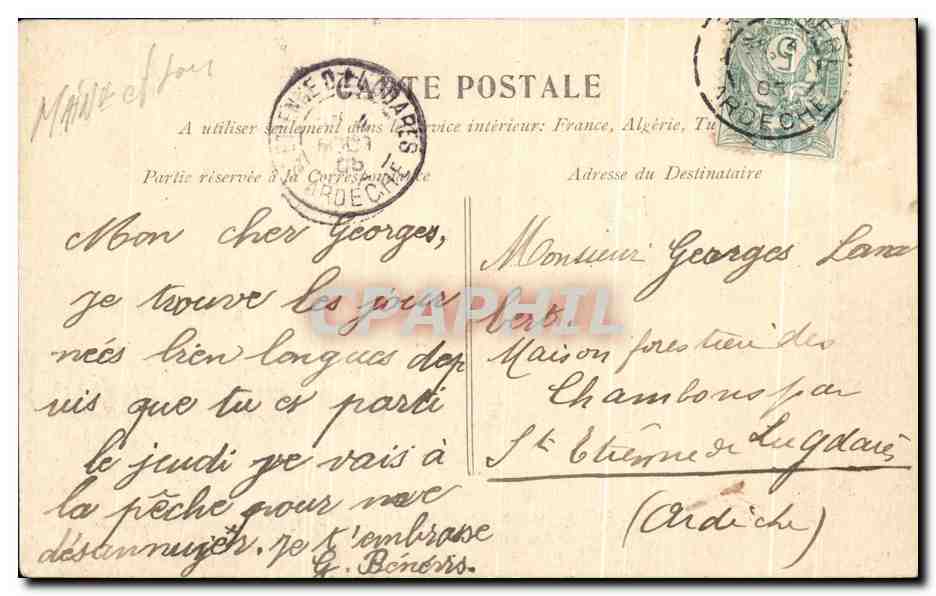 CARTE POSTALE
A utiliser seulement dans le service intérieur: France, Algérie, Tu
Partie réservée à la Correspondance
Adresse du Destinataire
ARDECHE
5
05
ARDECHE
Mon cher Georges,
je trouve les jour
nées bien longues dep
uis que tu es parti
le jeudi je vais à
la pêche pour me
désannuyer. je t'embrasse
G. Bénéris.
Monsieur Georges Lam
bert.
Maison forestière des
Chambons par
St Etienne de Lugdarès
(Ardèche)
CPAPHIL